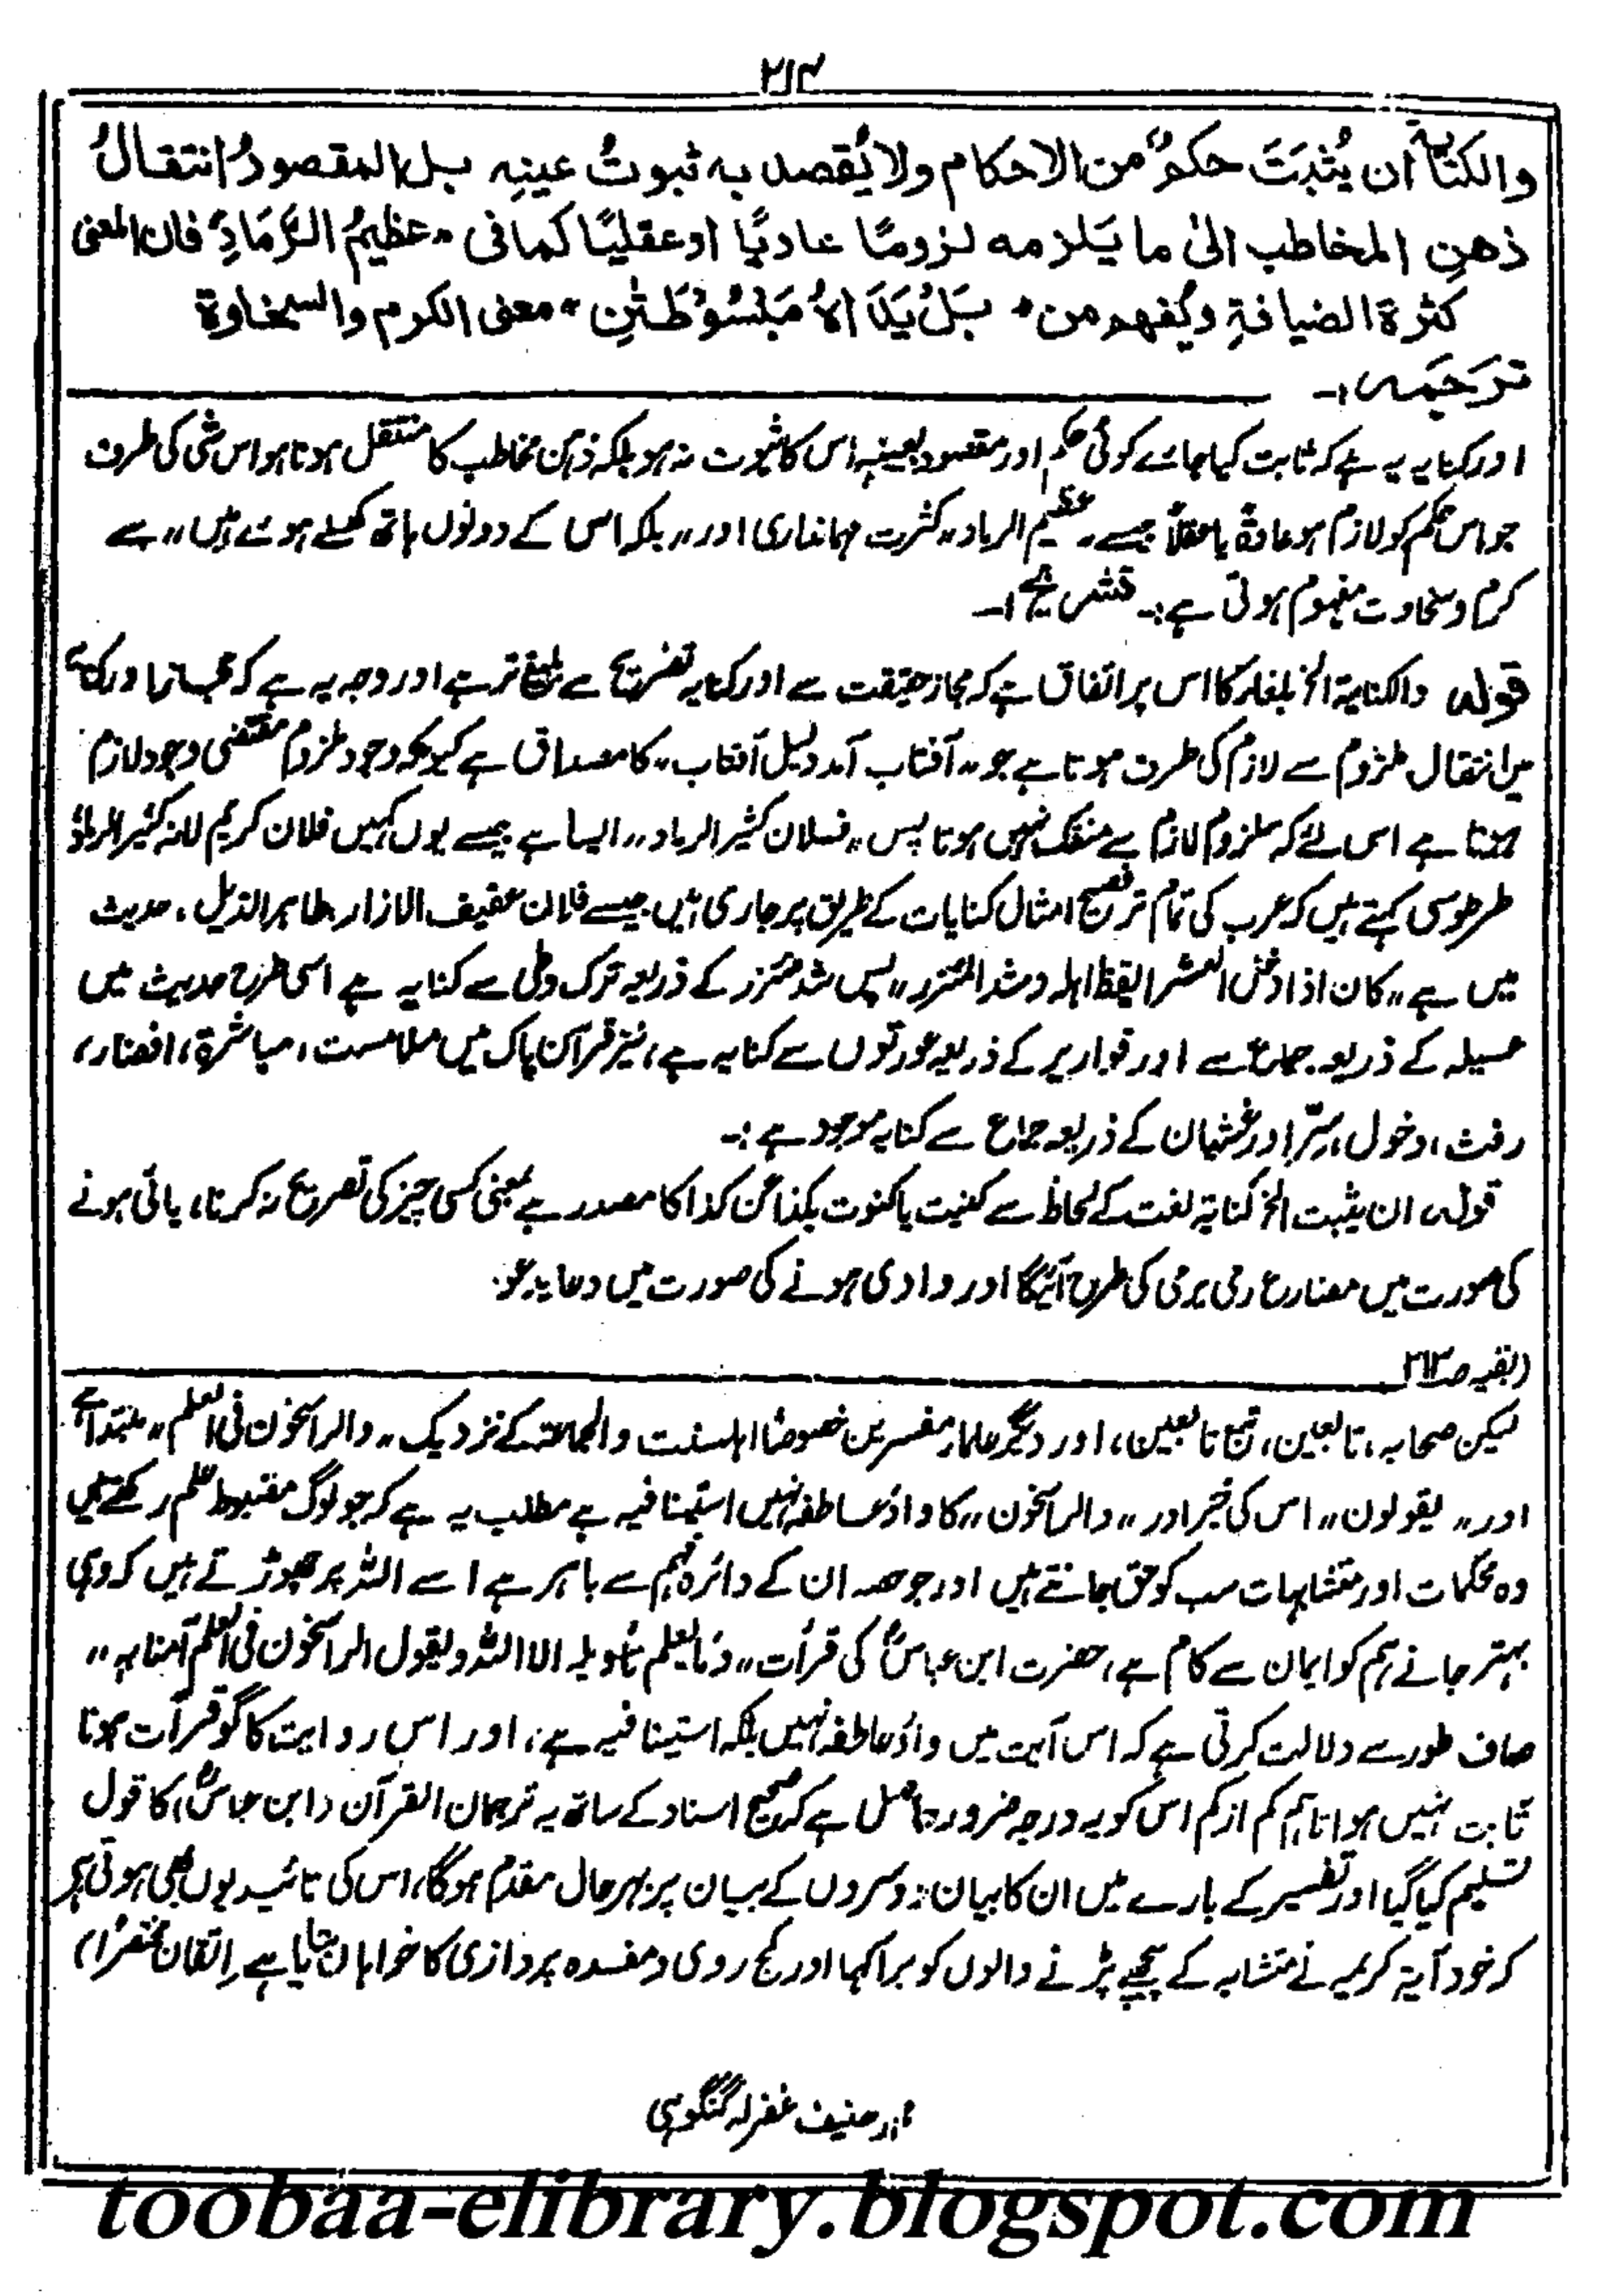 ۲۱۴
والكنايةُ ان يُثبَتَ حكمٌ من الاحكام ولا يُقصد به ثبوتُ عينِه بل المقصودُ انتقالُ
ذهنِ المخاطب الىٰ ما يَلزمه لزومًا عاديًا او عقليًا كما فى "عظيمُ الرَّمَادِ" فان المعنى
كثرة الضيافةِ ويُفهم من "بَلْ يَدَاهُ مَبْسُوْطَتٰنِ" معنى الكرم والسخاوة
ترجمہ:۔
اور کنایہ یہ ہے کہ ثابت کیا جائے کوئی حکم اور مقصود بعینہٖ اس کا ثبوت نہ ہو بلکہ ذہن مخاطب کا منتقل ہونا ہو اس شئ کی طرف
جو اس حکم کو لازم ہو عادۃً یا عقلاً جیسے "عظیم الرماد" کثرت مہمانداری اور "بلکہ اس کے دونوں ہاتھ کھلے ہوئے ہیں" سے
کرم و سخاوت مفہوم ہوتی ہے:۔ تشریح:۔
قولہ والکنایۃ الخ بلغاء کا اس پر اتفاق ہے کہ مجاز حقیقت سے اور کنایہ تصریح سے بلیغ تر ہے اور وجہ یہ ہے کہ مجاز اور کنایہ
میں انتقال ملزوم سے لازم کی طرف ہوتا ہے جو "آفتاب آمد دلیل آفتاب" کا مصداق ہے کیونکہ وجود ملزوم مقتضی وجود لازم
ہوتا ہے اس لئے کہ ملزوم لازم سے منفک نہیں ہوتا پس "فلان کثیر الرماد" ایسا ہے جیسے یوں کہیں فلان کریم لانہ کثیر الرماد
طرطوسی کہتے ہیں کہ عرب کی تمام تر فصیح امثال کنایات کے طریق پر جاری ہیں جیسے فلان عفیف الازار، طاہر الذیل، حدیث
میں ہے "کان اذا دخل العشر ایقظ اہلہ وشد المئزر" پس شد مئزر کے ذریعہ ترک وطی سے کنایہ ہے اسی طرح حدیث میں
عسیلہ کے ذریعہ جماع سے اور قواریر کے ذریعہ عورتوں سے کنایہ ہے، نیز قرآن پاک میں ملامست، مباشرۃ، افضاء،
رفث، دخول، سرّ اور غشیان کے ذریعہ جماع سے کنایہ موجود ہے:۔
قولہ ان یثبت الخ کنایۃ لغت کے لحاظ سے کنیت یا کنوت بکذا عن کذا کا مصدر ہے بمعنی کسی چیز کی تصریح نہ کرنا، یائی ہونے
کی صورت میں مضارع رمی یرمی کی طرح آئیگا اور وادی ہونے کی صورت میں دعا یدعو۔
(بقیہ ص۲۱۳
لیکن صحابہ، تابعین، تبع تابعین، اور دیگر علماء مفسرین خصوصًا اہلسنت والجماعۃ کے نزدیک "والراسخون فی العلم" مبتدا ہے
اور "یقولون" اس کی خبر اور "والراسخون" کا واؤ عاطفہ نہیں استینافیہ ہے مطلب یہ ہے کہ جو لوگ مضبوط علم رکھتے ہیں
وہ محکمات اور متشابہات سب کو حق جانتے ہیں اور جو حصہ ان کے دائرہ فہم سے باہر ہے اسے اللہ پر چھوڑتے ہیں کہ وہی
بہتر جانے ہم کو ایمان سے کام ہے، حضرت ابن عباسؓ کی قرأت "وما یعلم تأویلہ الا اللہ ویقول الراسخون فی العلم آمنا بہ"
صاف طور سے دلالت کرتی ہے کہ اس آیت میں واؤ عاطفہ نہیں بلکہ استینافیہ ہے، اور اس روایت کا گو قرآت ہونا
ثابت نہیں ہوا تاہم کم از کم اس کو یہ درجہ ضرور حاصل ہے کہ صحیح اسناد کے ساتھ یہ ترجمان القرآن (ابن عباسؓ) کا قول
تسلیم کیا گیا اور تفسیر کے بارے میں ان کا بیان دوسروں کے بیان پر بہرحال مقدم ہوگا، اس کی تائید یوں بھی ہوتی ہے
کہ خود آیۃ کریمہ نے متشابہ کے پیچھے پڑنے والوں کو برا کہا اور کج روی و مفسدہ پردازی کا خواہاں بتایا ہے (اتقان مختصرًا)
محمد حنیف غفرلہ گنگوہی
toobaa-elibrary.blogspot.com